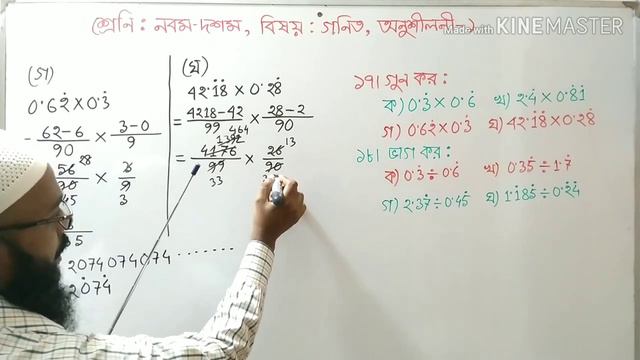 (শ্রেণি : নবম-দশম, বিষয় : গনিত, অনুশীলনী
Made with KINEMASTER
(গ)
0·62̇ × 0·3̇
= 62-6/90 × 3-0/9
56 28/90 45 × 3/9 3
2074 074 074 ........
2̇074̇
(ঘ)
42·1̇8̇ × 0·28̇
= 4218-42/99 × 28-2/90
= 4176 1392 464/99 33 × 26 13/90
১৭। গুন কর :
ক) 0·3̇ × 0·6̇ খ) 2·4̇ × 0·8̇1̇
গ) 0·62̇ × 0·3̇ ঘ) 42·1̇8̇ × 0·28̇
১৮। ভাগ কর :
ক) 0·3̇ ÷ 0·6̇ খ) 0·35̇ ÷ 1·7̇
গ) 2·37̇ ÷ 0·45̇ ঘ) 1·1̇85̇ ÷ 0·2̇4̇